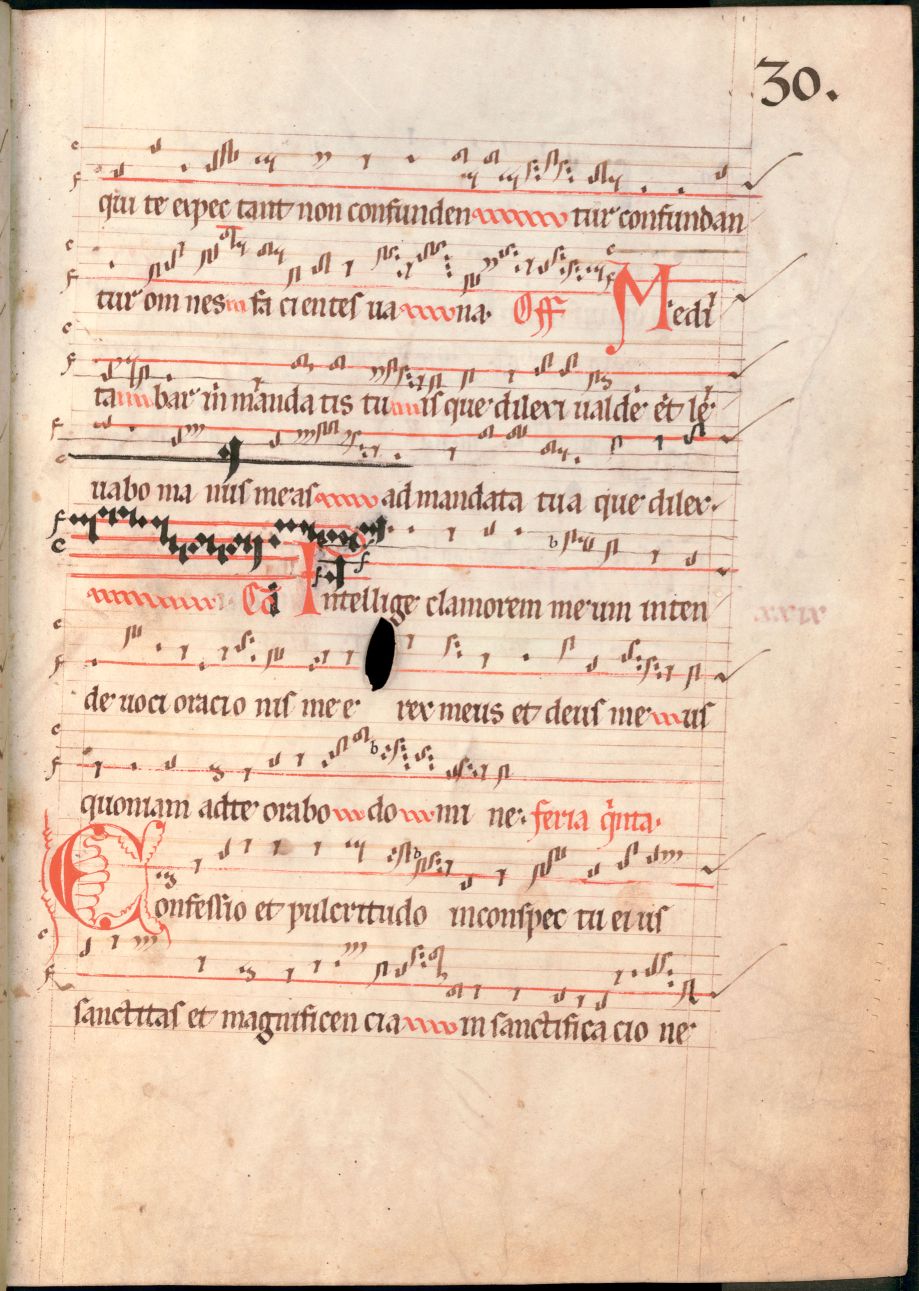 30.
qui te expec tant non confunden tur confundan
tur om nes in fa ci entes ua na. Off Medi
ta bar in manda tis tu is que dilexi ualde et le
uabo ma nus meas ad mandata tua que dilex.
Co Intellige clamorem meum inten
de uoci oracio nis mee rex meus et deus me us
quoniam adte orabo do mi ne. feria qinta.
Confessio et pulcritudo inconspec tu ei us
sanctitas et magnificen cia in sanctifica cio ne